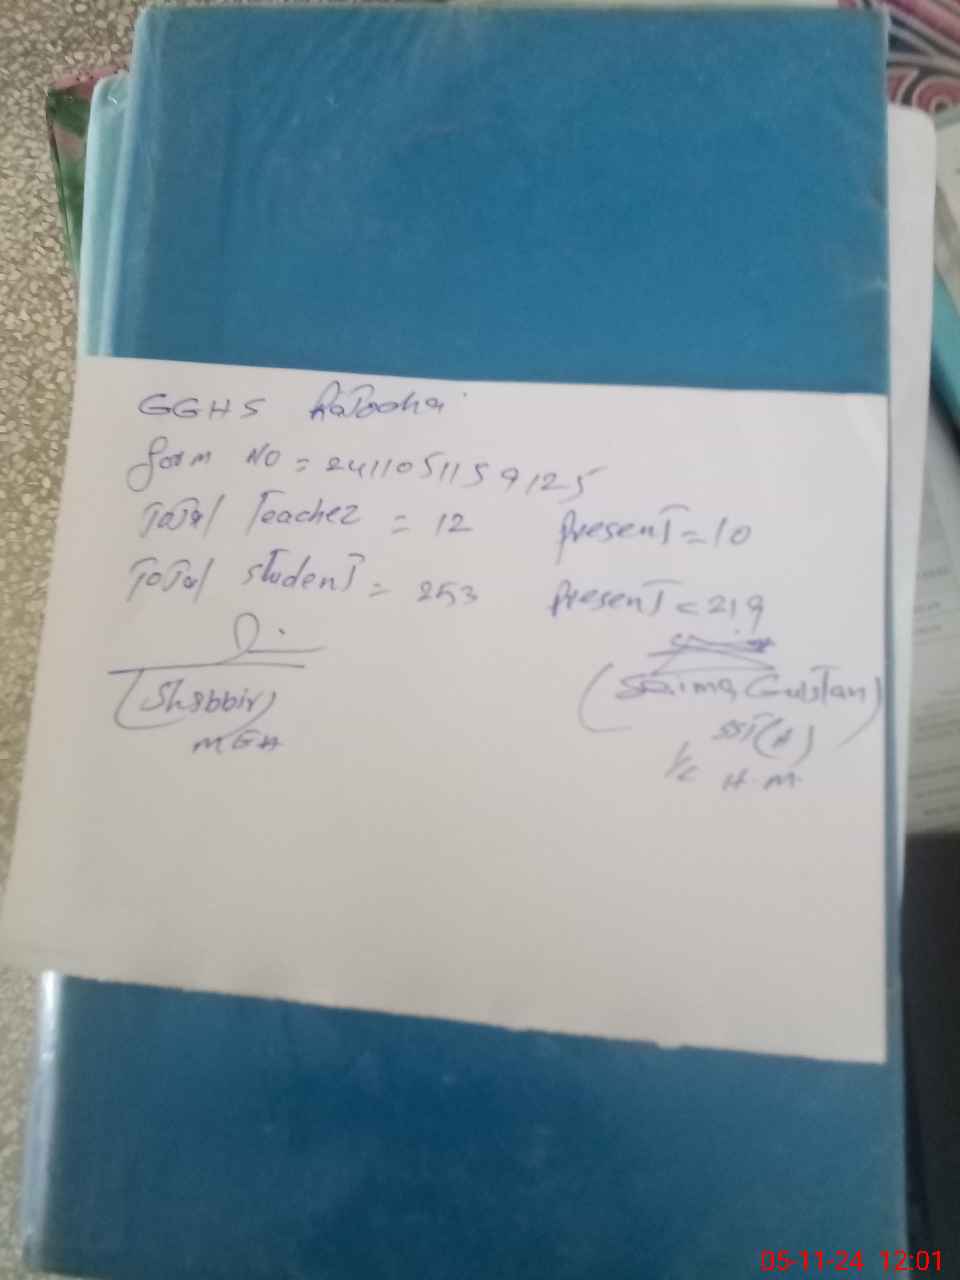 GGHS
Form No = 2411051159125
Total Teacher = 12 Present = 10
Total Student = 253 Present = 219
(Shabbir) (Saima Gulstan)
MEA SST(A)
I/C H.M.
05-11-24 12:01